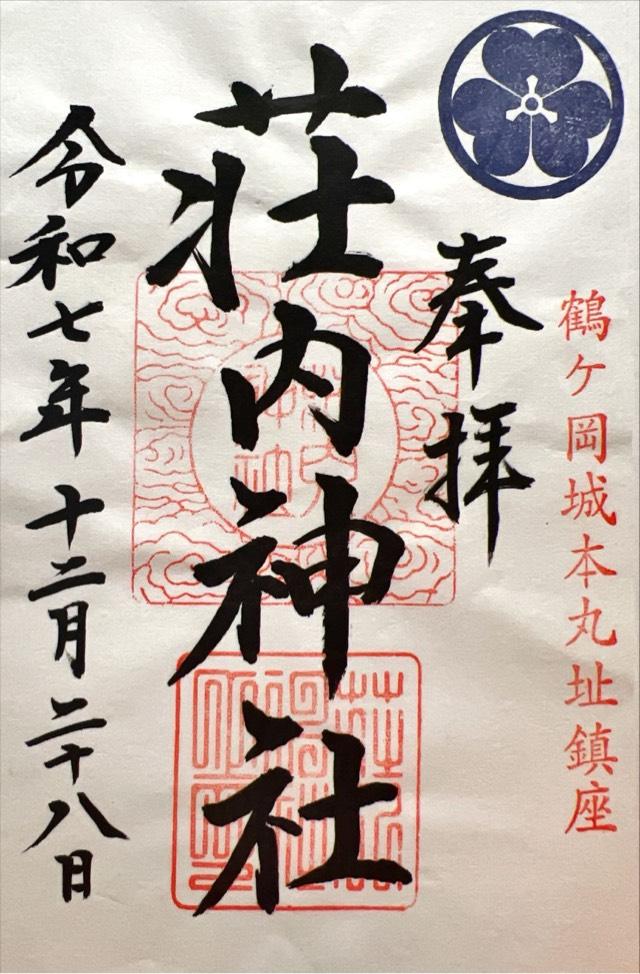 鶴ヶ岡城本丸址鎮座
奉拝
荘内神社
令和七年十二月二十八日